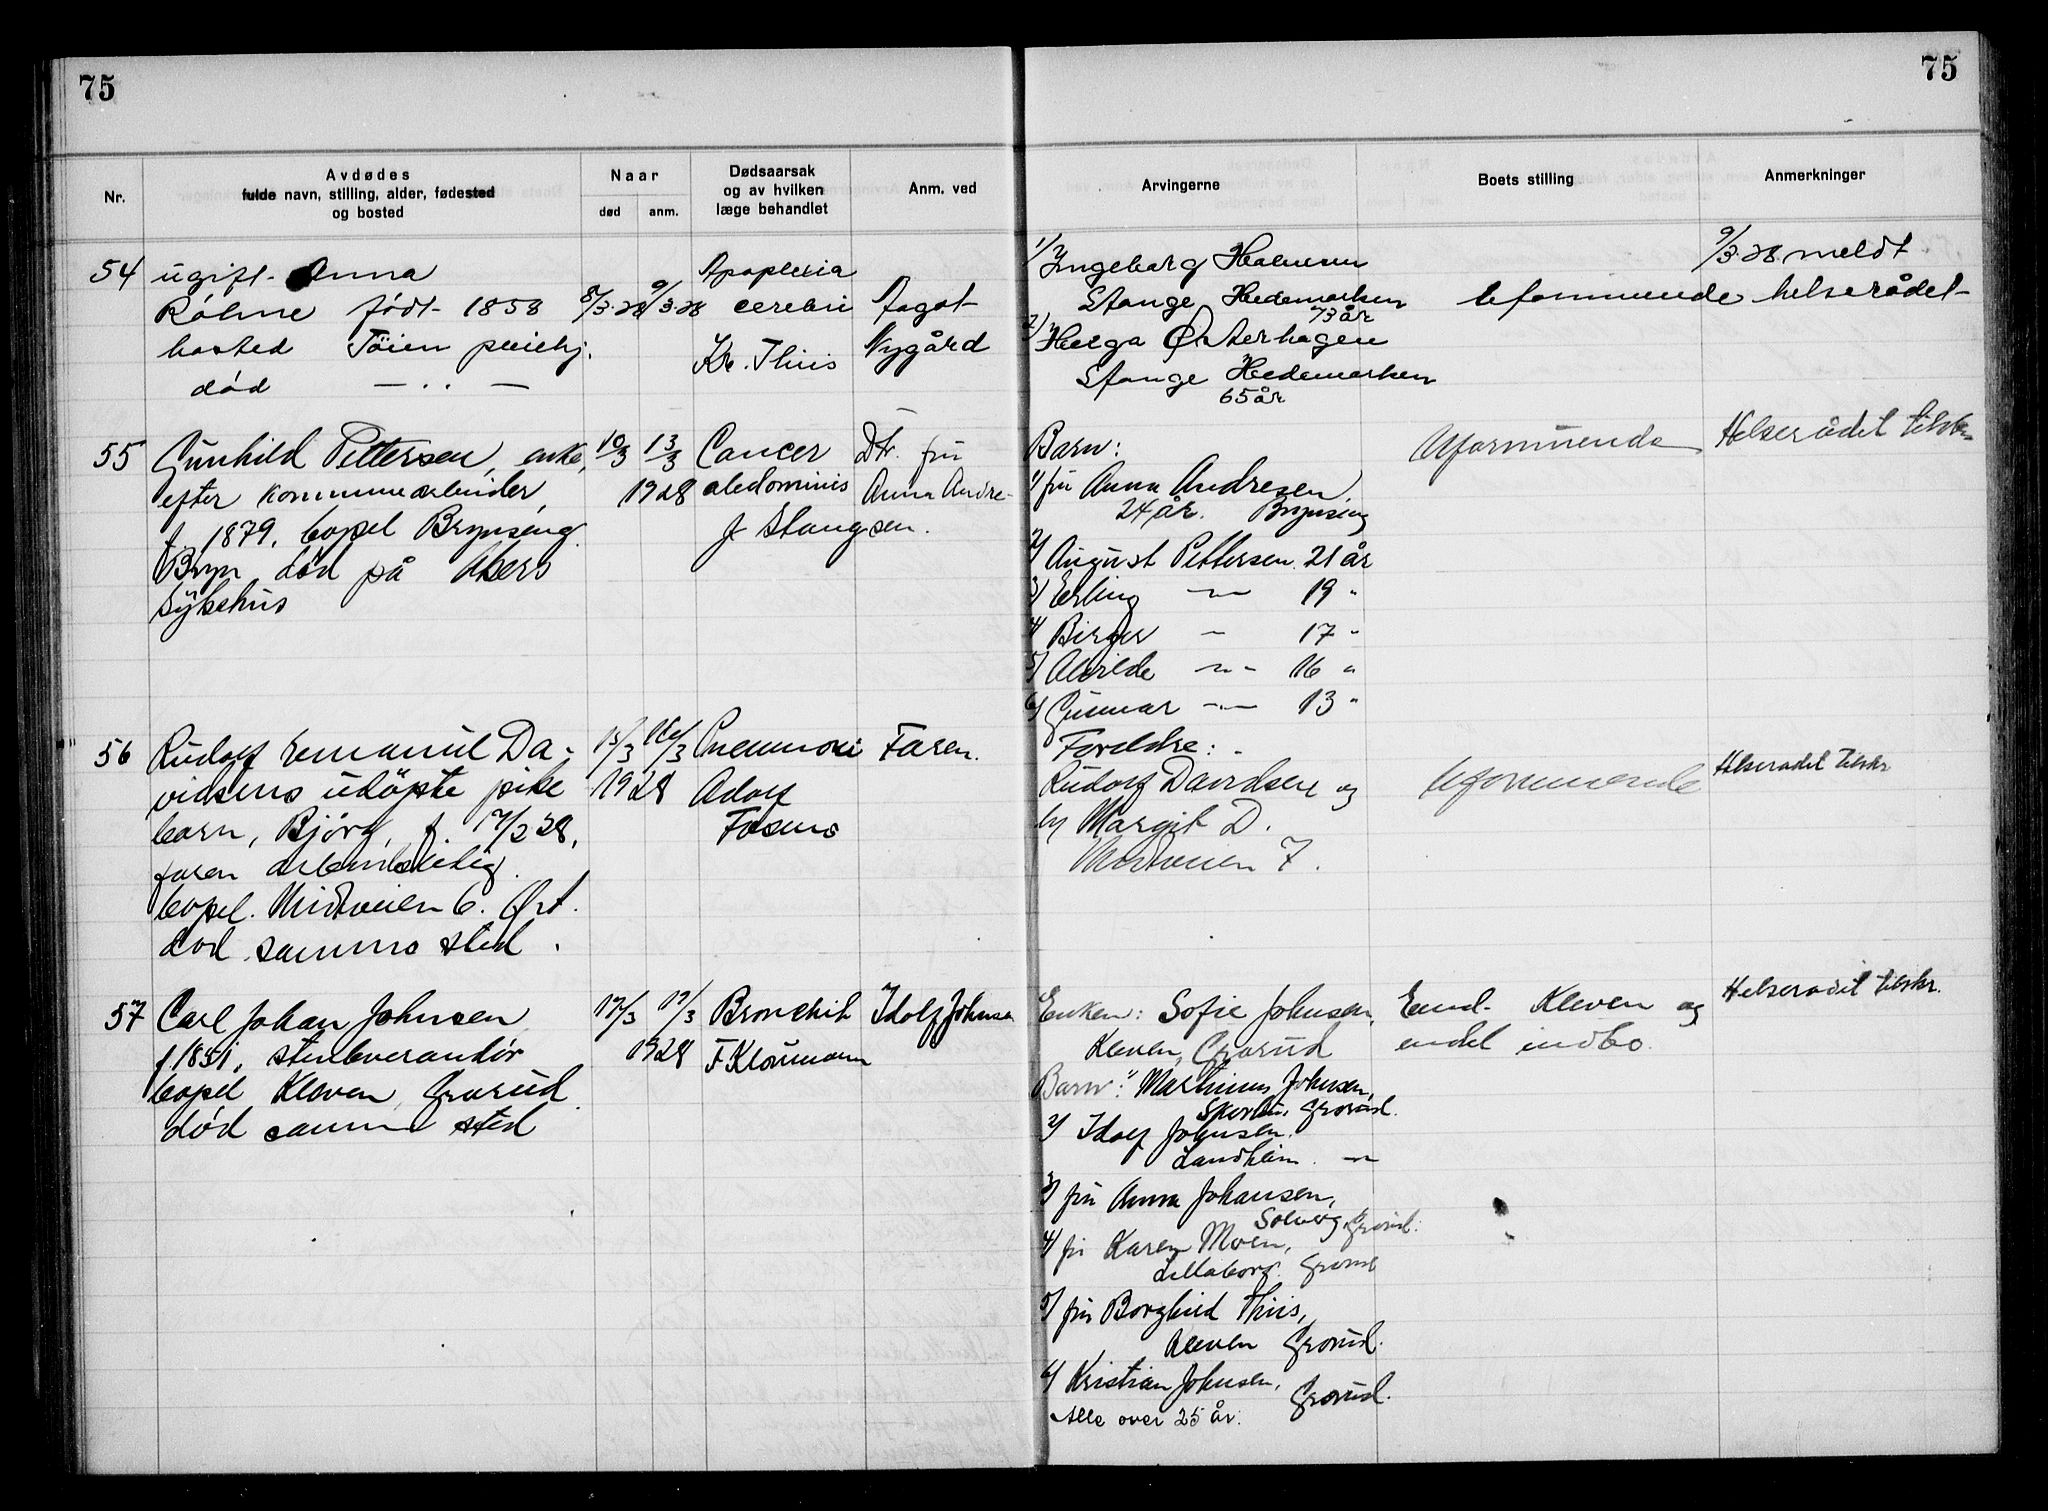 75
75
Nr.
Avdødes
fulde navn, stilling, alder, fødested
og bosted
Naar
død
anm.
Dødsaarsak
og av hvilken
læge behandlet
Anm. ved
Arvingerne
Boets stilling
Anmerkninger
54
ugift Anna
født 1858
bosted Töien pleiehj.
død — ·· —
8/3-28
9/3-28
Apoplexia
cerebri
Kr. Thiis
Fogot
Nygård
1/ Ingeborg Halvesen
Stange Hedemarken
73 år
2/ Helga Østerhagen
Stange Hedemarken
65 år
Uformuende
9/3-28 meldt
helserådet
55
Gunhild Pettersen, enke,
efter kommunearbeider,
f. 1879, bopel Brynseng
Bryn, død på Akers
Sykehus
10/3
13/3
1928
Cancer
abdominis
J Stang
Dtr. fru
Anna Andre-
sen.
Barn:
1/ fru Anna Andresen,
24 år. Brynseng
2/ August Pettersen 21 år
3/ Erling —"— 19 "
4/ Birger — 17 "
5/ Alvilde —"— 16 "
6/ Gunnar —"— 13 "
Uformuende
Helserådet tilskr.
56
Rudolf Emanuel Da-
vidsens udöpte pike
barn, Bjørg, f. 17/2 28,
faren arbeidsledig.
bopel. Midtveien 6. Øst.
död samme sted.
15/3
16/3
1928
Pneumoni
Adolf
Faren.
Foreldre:
Rudolf Davidsen og
Margit D.
Midtveien 7.
Uformuende
Helseradet tilskr
57
Carl Johan Johnsen
f 1851, stenleverandör
bopel Kleven, Grorud
död samme sted
17/3
19/3
1928
Bronchit
F Kloumann
Idolf Johnsen
Enken: Sofie Johnsen,
Kleven, Grorud
Barn: 1/ Martinus Johnsen,
Grorud.
2/ Idolf Johnsen.
Landheim. —"—
3/ fru Anna Johansen,
Solveig, Grorud.
4/ fr Karen Moen,
Lilleborg. Grorud
5/ fru Borghild Thiis,
Kleven Grorud.
6/ Kristian Johnsen,
Grorud.
Alle over 25 år.
Eiend. Kleven og
endel indbo.
Helseradet tilskr.